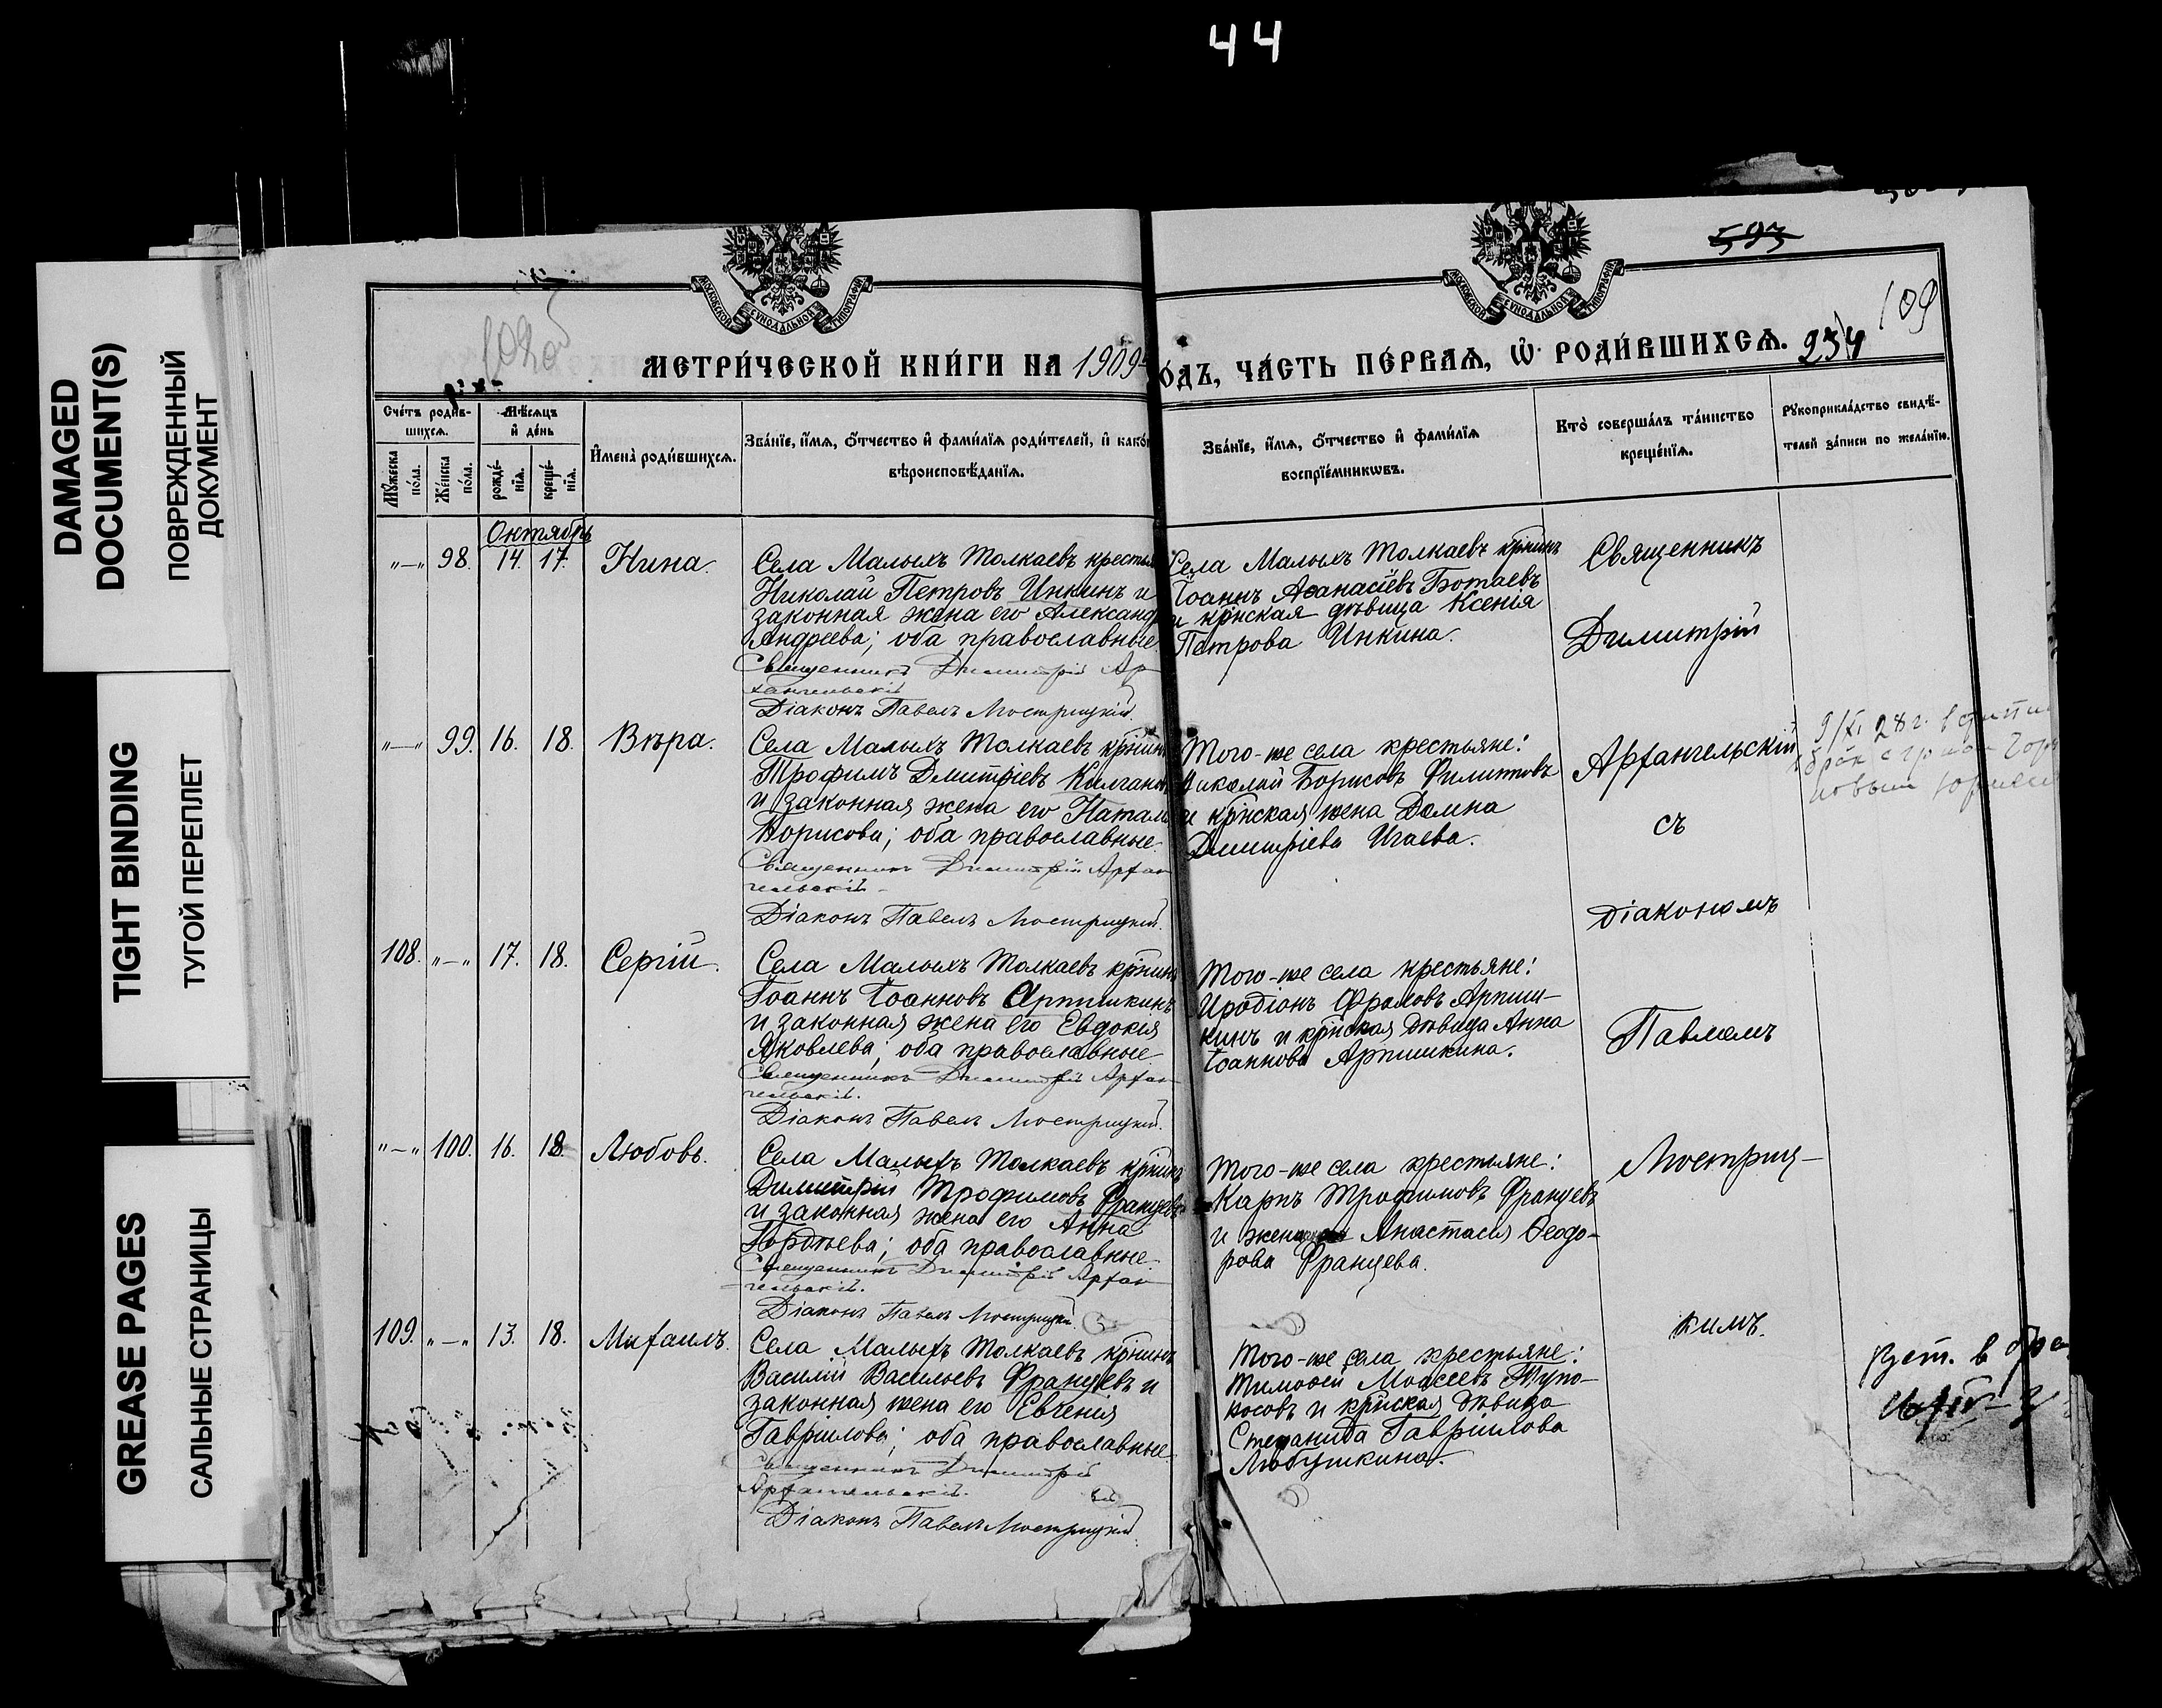 44
DAMAGED
DOCUMENT(S)
ПОВРЕЖДЕННЫЙ
ДОКУМЕНТ
TIGHT BINDING
ТУГОЙ ПЕРЕПЛЕТ
GREASE PAGES
САЛЬНЫЕ СТРАНИЦЫ
МОСКОВСКОЙ СѴНОДАЛЬНОЙ ТИПОГРАФІИ
МОСКОВСКОЙ СѴНОДАЛЬНОЙ ТИПОГРАФІИ
593
109
МЕТРИ́ЧЕСКОЙ КНИ́ГИ НА 1909
ОДЪ, ЧА́СТЬ ПЕ́РВАѦ, Ѡ РОДИ́ВШИХСѦ. 234
Сче́тъ роди́в-
шихсѧ.
Мѣ́сѧцъ
и҆ де́нь
Мꙋ́жеска
по́ла.
Же́нска
по́ла.
рожде́-
нїѧ.
креще́-
нїѧ.
И҆мена̀ роди́вшихсѧ.
Зва́нїе, и҆́мѧ, ѻ҆́тчество и҆ фамѝлїѧ роди́телей, и҆ како́
вѣроисповѣ́данїѧ.
Зва́нїе, и҆́мѧ, ѻ҆́тчество и҆ фамѝлїѧ
воспрїе́мникѡвъ.
Кто̀ соверша́лъ та́инство
креще́нїѧ.
Рꙋкоприкла́дство свидѣ́-
телей за́писи по жела́нїю.
Октябрь
"—" 98. 14. 17. Нина.
Села Малыхъ Толкаевъ крестья
Николай Петровъ Инкинъ и
законная жена его Александ
Андреева; оба православные
Священникъ Димитрій Ар
хангельскій
Діаконъ Павелъ Мострицкій.
Села Малыхъ Толкаевъ кр̃нинъ
Іоаннъ Аѳанасіевъ Ботаевъ
и кр̃нская дѣвица Ксенія
Петрова Инкина.
"—" 99. 16. 18. Вѣра.
Села Малыхъ Толкаевъ кр̃нин
Трофимъ Дмитріевъ Килган
и законная жена его Натал
Борисова; оба православные
Священникъ Димитрій Архан
гельскій
Діаконъ Павелъ Мострицкій.
Того-же села крестьяне:
Николай Борисовъ Филитовъ
и кр̃нская жена Домна
Дмитріева Игаева.
108. "—" 17. 18. Сергій.
Села Малыхъ Толкаевъ кр̃нинъ
Іоаннъ Іоанновъ Арпишкинъ
и законная жена его Евдокія
Яковлева; оба православные
Священникъ Димитрій Архан
гельскій.
Діаконъ Павелъ Мострицкій.
Того-же села крестьяне:
Иродіонъ Фроловъ Арпиш-
кинъ и кр̃нская дѣвица Анна
Іоаннова Арпишкина.
"—" 100. 16. 18. Любовь.
Села Малыхъ Толкаевъ кр̃нинъ
Димитрій Трофимовъ Францевъ
и законная жена его Анна
Гордѣева; оба православные.
Священникъ Димитрій Архан
гельскій.
Діаконъ Павелъ Мострицкій.
Того-же села крестьяне:
Карпъ Трофимовъ Францевъ
и жена Анастасія Ѳеодо-
рова Францева.
109. "—" 13. 18. Михаилъ.
Села Малыхъ Толкаевъ кр̃нинъ
Василій Васильевъ Францевъ и
законная жена его Евгенія
Гавріилова; оба православные
Священникъ Димитрій
Архангельскій.
Діаконъ Павелъ Мострицкій.
Того-же села крестьяне:
Тимоѳей Моѵсеевъ Тупо-
носовъ и кр̃нская дѣвица
Стефанида Гавріилова
Любушкина.
Священникъ
Димитрій
Архангельскій
съ
діакономъ
Павломъ
Мостриц-
кимъ.
9/XI 28 г.